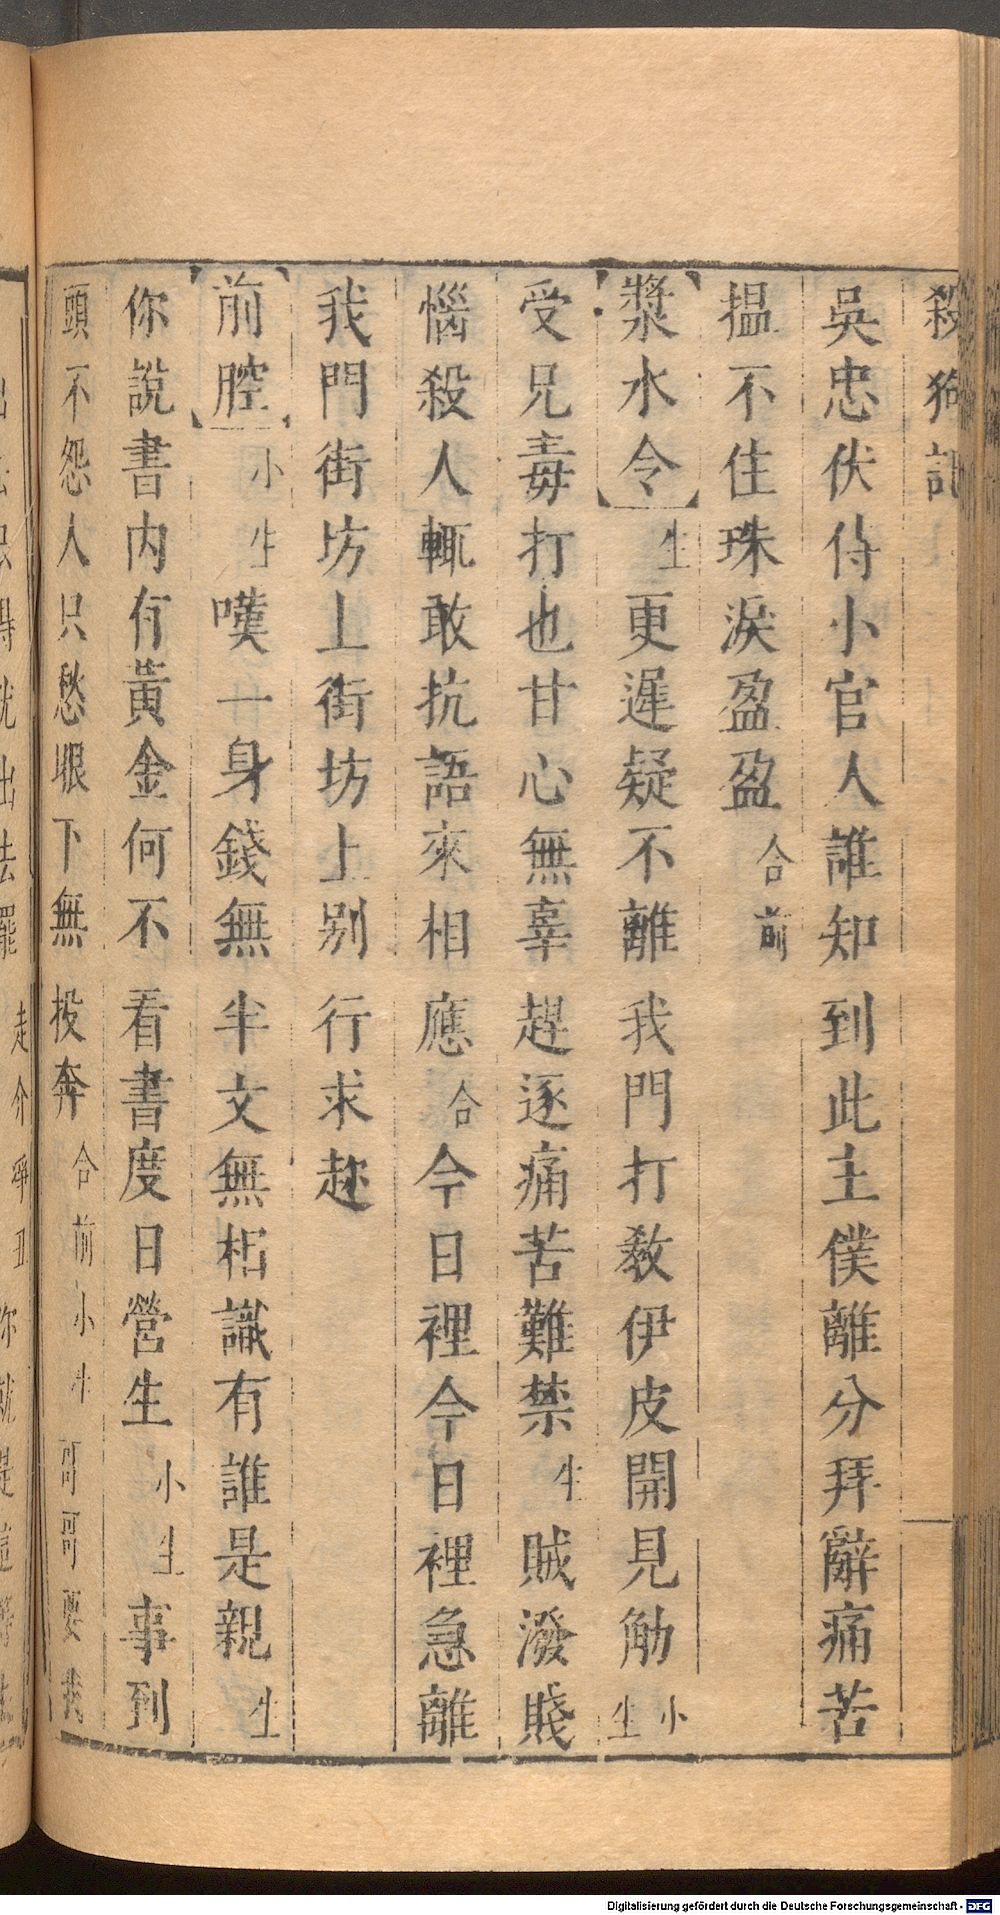 殺狗記
吳忠伏侍小官人誰知到此主僕離分拜辭痛苦
揾不住珠淚盈盈合前
【漿水令】生更遲疑不離我門打敎伊皮開見觔小生
受兄毒打也甘心無辜趕逐痛苦難禁生賊潑賤
惱殺人輒敢抗語來相應合今日裡今日裡急離
我門街坊上街坊上别行求趂
【前腔】小生嘆一身錢無半文無相識有誰是親生
你說書内有黃金何不看書度日營生小生事到
頭不怨人只愁眼下無投奔合前小生哥哥要我
Digitalisierung gefördert durch die Deutsche Forschungsgemeinschaft - DFG